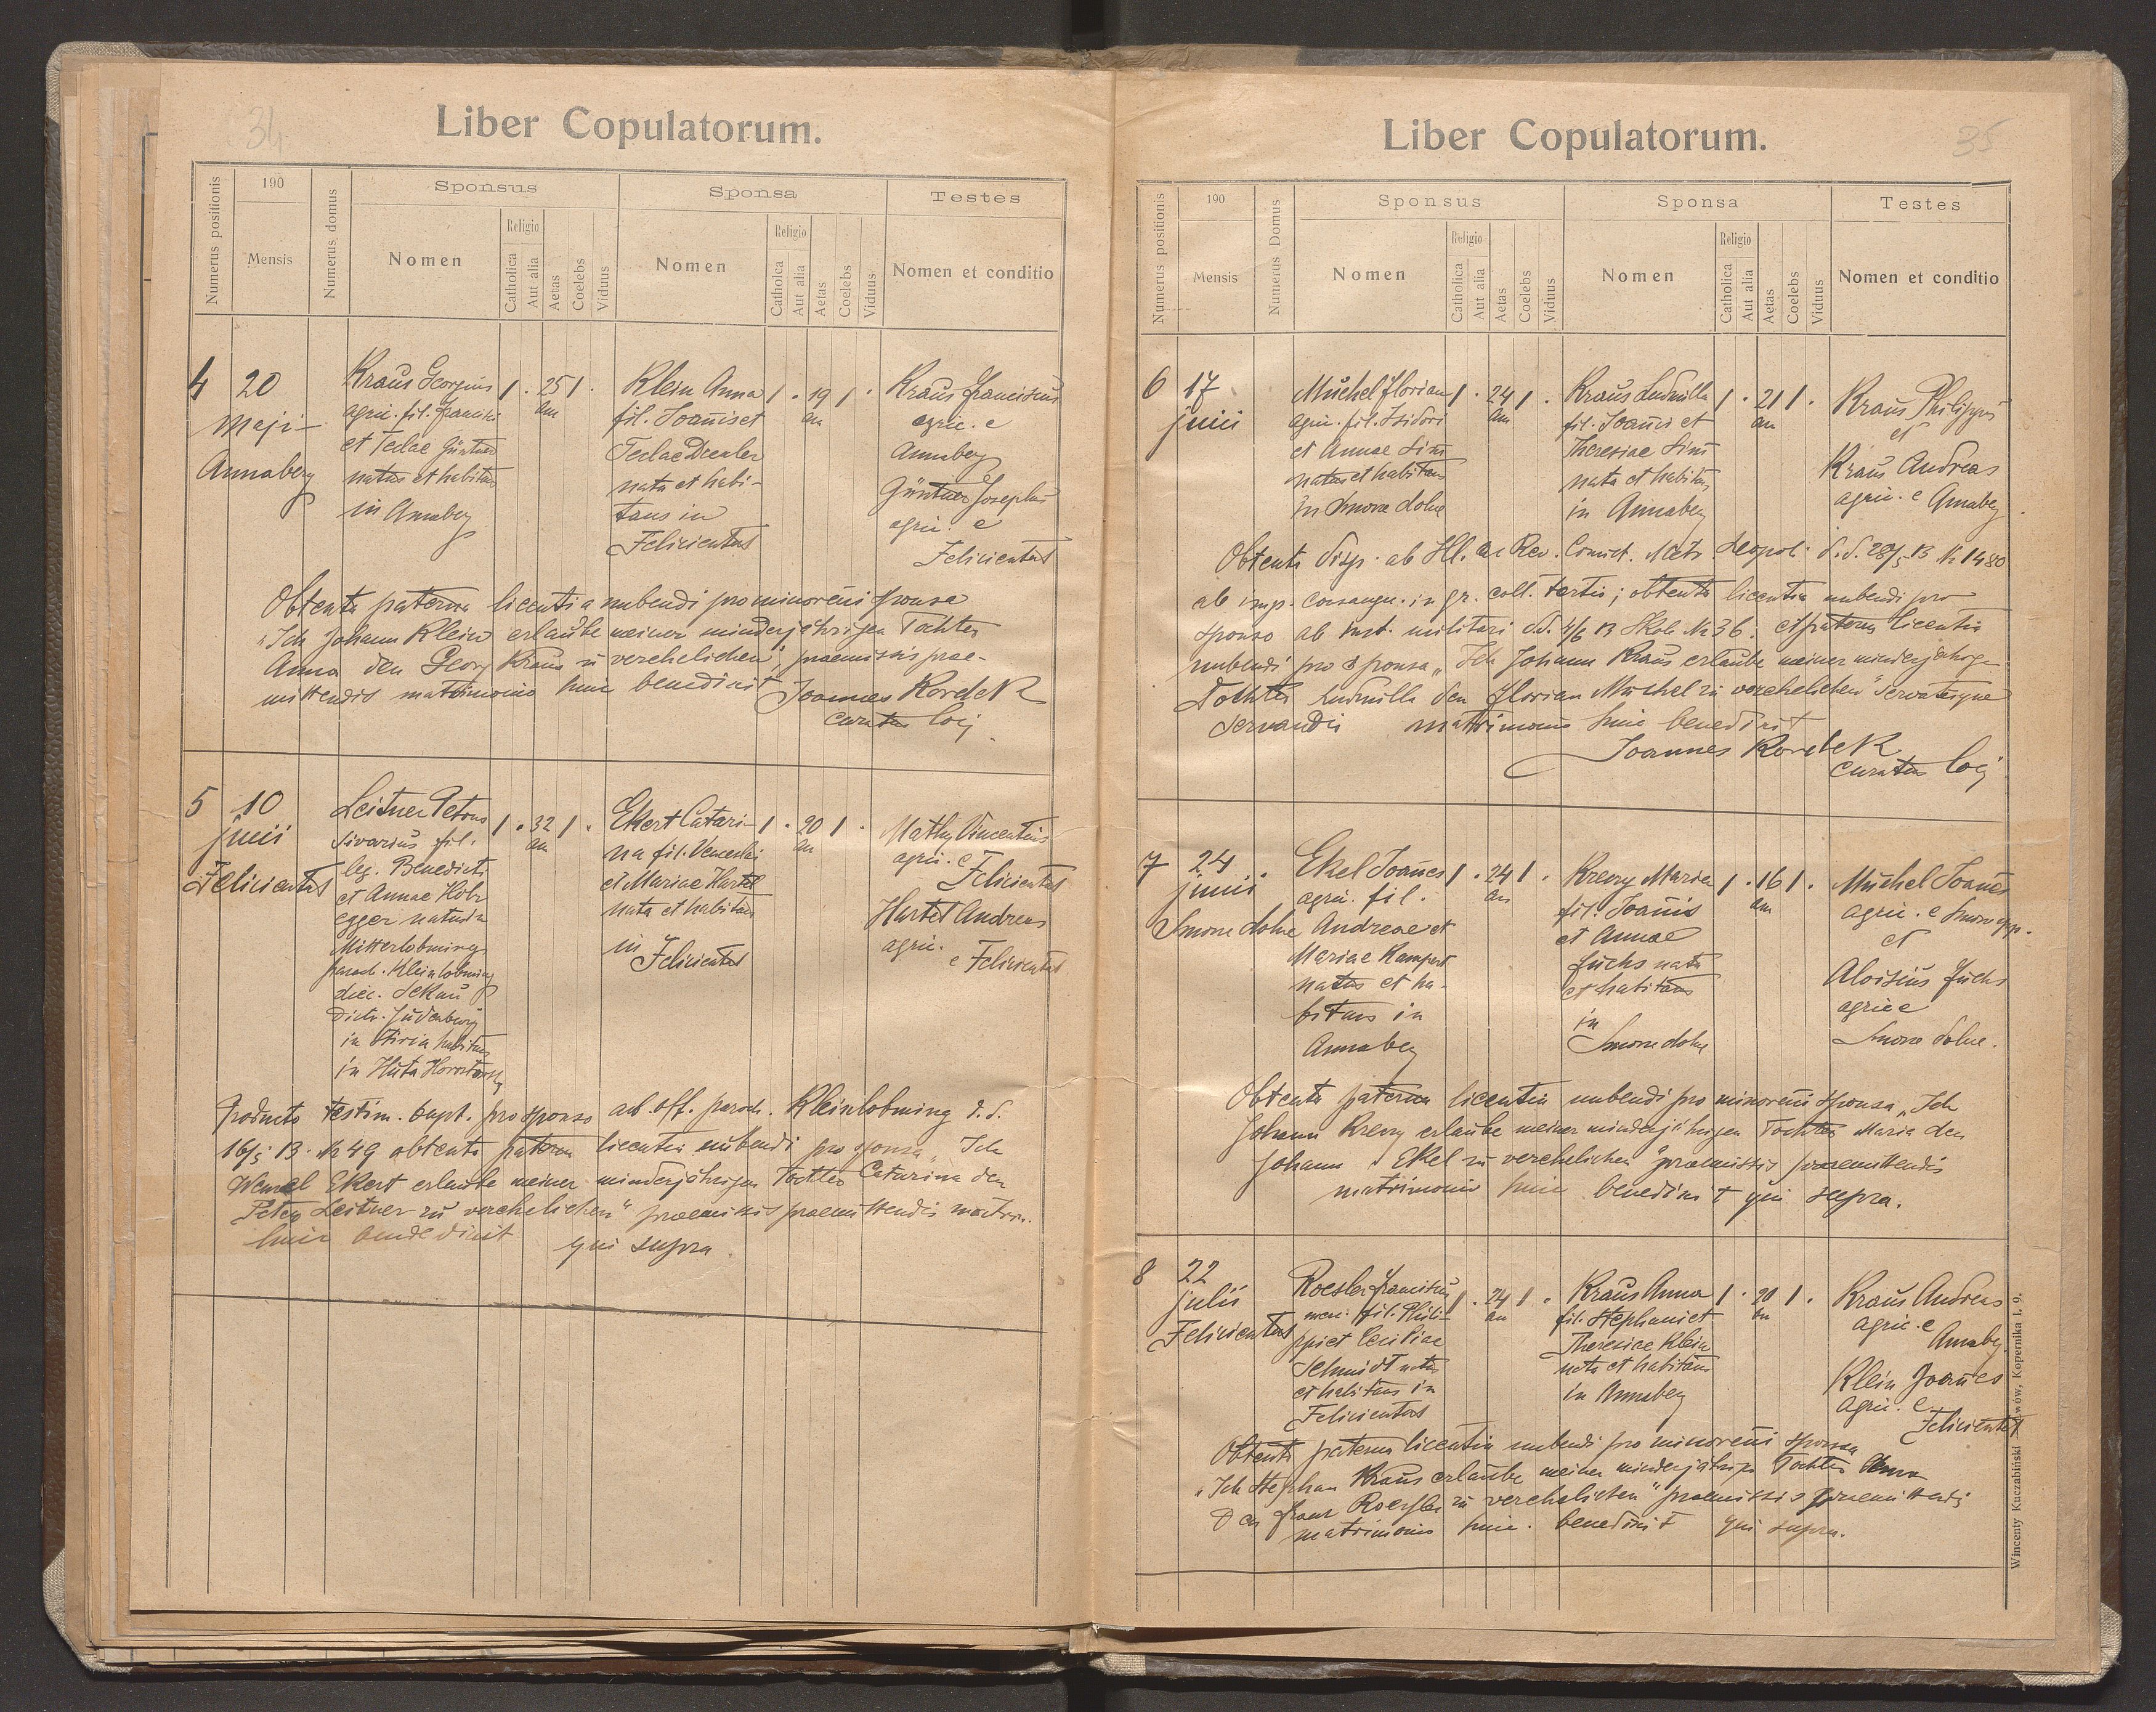 34
Liber Copulatorum.
Numerus positionis
190
Mensis
Numerus domus
Sponsus
Nomen
Religio
Catholica
Aut alia
Aetas
Coelebs
Viduus
Sponsa
Nomen
Religio
Catholica
Aut alia
Aetas
Coelebs
Viduus
Testes
Nomen et conditio
4
20
Maji
Annaberg
Kraus Georgius
agric. fil. Francisci
et Teclae Güntner
natus et habitans
in Annaberg
1 . 25 1 .
an
Klein Anna
fil. Joannis et
Teclae Drexler
nata et habi-
tans in
Felicienthal
1 . 19 1 .
an
Kraus Franciscus
agric. e
Annaberg
Güntner Josephus
agric. e
Felicienthal
Obtenta paterna licentia nubendi pro minorenni sponsa
"Ich Johann Klein erlaube meiner minderjährigen Tochter
Anna den Georg Kraus zu verehelichen", praemissis prae-
mittendis matrimonio huic benedixit Joannes Kordek
curatus loci
5
10
junii
Felicienthal
Leitner Petrus
fil.
leg. Benedicti
et Annae Holz
egger natus in
Mitterlobming
paroch. Kleinlobming
diec. Sekau
Distr. Judenburg
in Stiria habitans
in Huta
1 . 32 1 .
an
Ekert Catari-
na fil. Venceslai
et Mariae Hartel
nata et habitans
in
Felicienthal
1 . 20 1 .
an
Mathy Vincentius
agric. e
Felicienthal
Hartel Andreas
agric.
e Felicienthal
Producto testim. bapt. pro sponso ab off. paroch. Kleinlobming d.d.
16/5 13. N 49 obtenta paterna licentia nubendi pro sponsa "Ich
Wenzel Ekert erlaube meiner minderjährigen Tochter Catarina den
Peter Leitner zu verehelichen" praemissis praemittendis matrim.
huic benedixit qui supra
35
Liber Copulatorum.
Numerus positionis
190
Mensis
Numerus Domus
Sponsus
Nomen
Religio
Catholica
Aut alia
Aetas
Coelebs
Viduus
Sponsa
Nomen
Religio
Catholica
Aut alia
Aetas
Coelebs
Viduus
Testes
Nomen et conditio
6
17
junii
Müchel Florian
agric. fil. Isidori
et Annae
natus et habitans
in Smorze dolne
1 . 24 1 .
an
Kraus Ludmilla
fil. Joannis et
Theresiae
nata et habitans
in Annaberg
1 . 21 1 .
an
Kraus Philippus
et
Kraus Andreas
agric. e Annaberg
Obtenta disp. ab Ill. ac Rev. Metr. Leopol. d.d. 28/5 13 N 1480
ab imp. consangu. in gr. coll. tertio; obtenta licentia nubendi pro
sponso ab inst. militari d.d. 4/6 13 Skole N 36. et paterna licentia
nubendi pro sponsa "Ich Johann Kraus erlaube meiner minderjährigen
Tochter Ludmilla den Florian Müchel zu verehelichen" servatisque
servandis matrimonio huic benedixit
Joannes Kordek
curatus loci
7
24
junii
Smorze dolne
Ekel Joannes
agric. fil.
Andreae et
Mariae Rampert
natus et ha-
bitans in
Annaberg
1 . 24 1 .
an
Kreuy Maria
fil. Joannis
et Annae
Fuchs nata
et habitans
in
Smorze dolne
1 . 16 1 .
an
Müchel Joannes
agric. e Smorze
et
Aloisius Fuchs
agric e
Smorze dolne.
Obtenta paterna licentia nubendi pro minorenni sponsa "Ich
Johann Kreuy erlaube meiner minderjährigen Tochter Maria den
Johann Ekel zu verehelichen" praemissis praemittendis
matrimonio huic benedixit qui supra.
8
22
julii
Felicienthal
Roessler Franciscus
fil. Phili-
ppi et Ceciliae
Schmidt natus
et habitans in
Felicienthal
1 . 24 1 .
an
Kraus Anna
fil. Stephani et
Theresiae Klein
nata et habitans
in Annaberg
1 . 20 1 .
an
Kraus Andreas
agric. e
Annaberg
Klein Joannes
agric. e
Felicienthal
Obtenta paterna licentia nubendi pro minorenni sponsa
"Ich Stephan Kraus erlaube meiner minderjährigen Tochter Anna
den Franz Roessler zu verehelichen" praemissis praemittendis
matrimonio huic. benedixit qui supra.
Wincenty Kuczabiński Lwów, Kopernika l. 9.